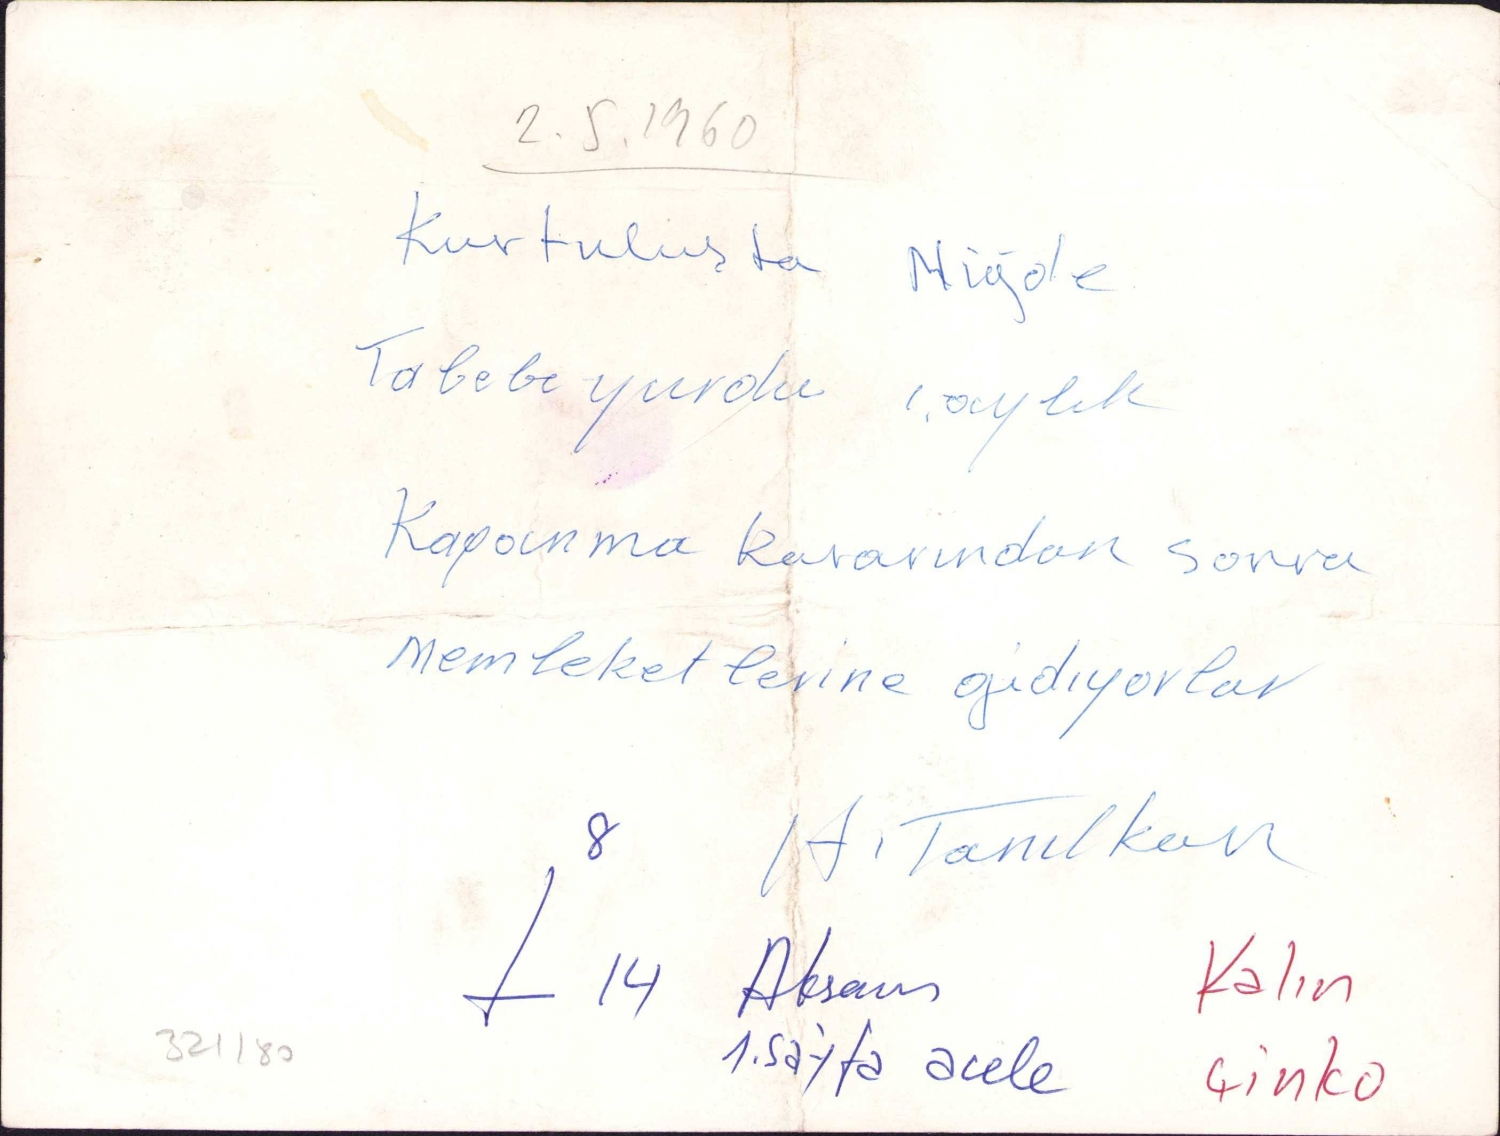 2.5.1960
Kurtuluşta Niğde
Talebe yurdu 1.aylık
Kapanma kararından sonra
memleketlerine gidiyorlar
8
H. Tanılkan
14 Akşam Kalın
1.sayfa acele çinko
321/80